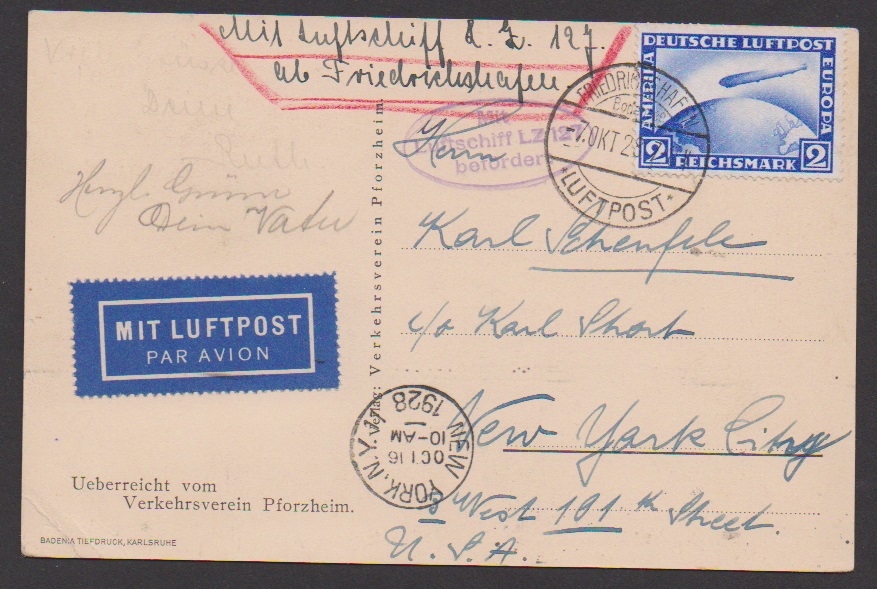 Mit Luftschiff L. Z. 127.
ab Friedrichshafen
DEUTSCHE LUFTPOST
AMERIKA
EUROPA
2 REICHSMARK 2
FRIEDRICHSHAFEN
OKT 28
* LUFTPOST *
Mit
Luftschiff LZ 127
befördert
Herrn
Herzl. Grüsse
Dein Vater
Karl
c/o Karl Short
New York City
8 West 101th Street.
U. S. A.
MIT LUFTPOST
PAR AVION
NEW YORK, N.Y.
OCT 16
10-AM
1928
Verlag: Verkehrsverein Pforzheim.
Ueberreicht vom
Verkehrsverein Pforzheim.
BADENIA TIEFDRUCK, KARLSRUHE